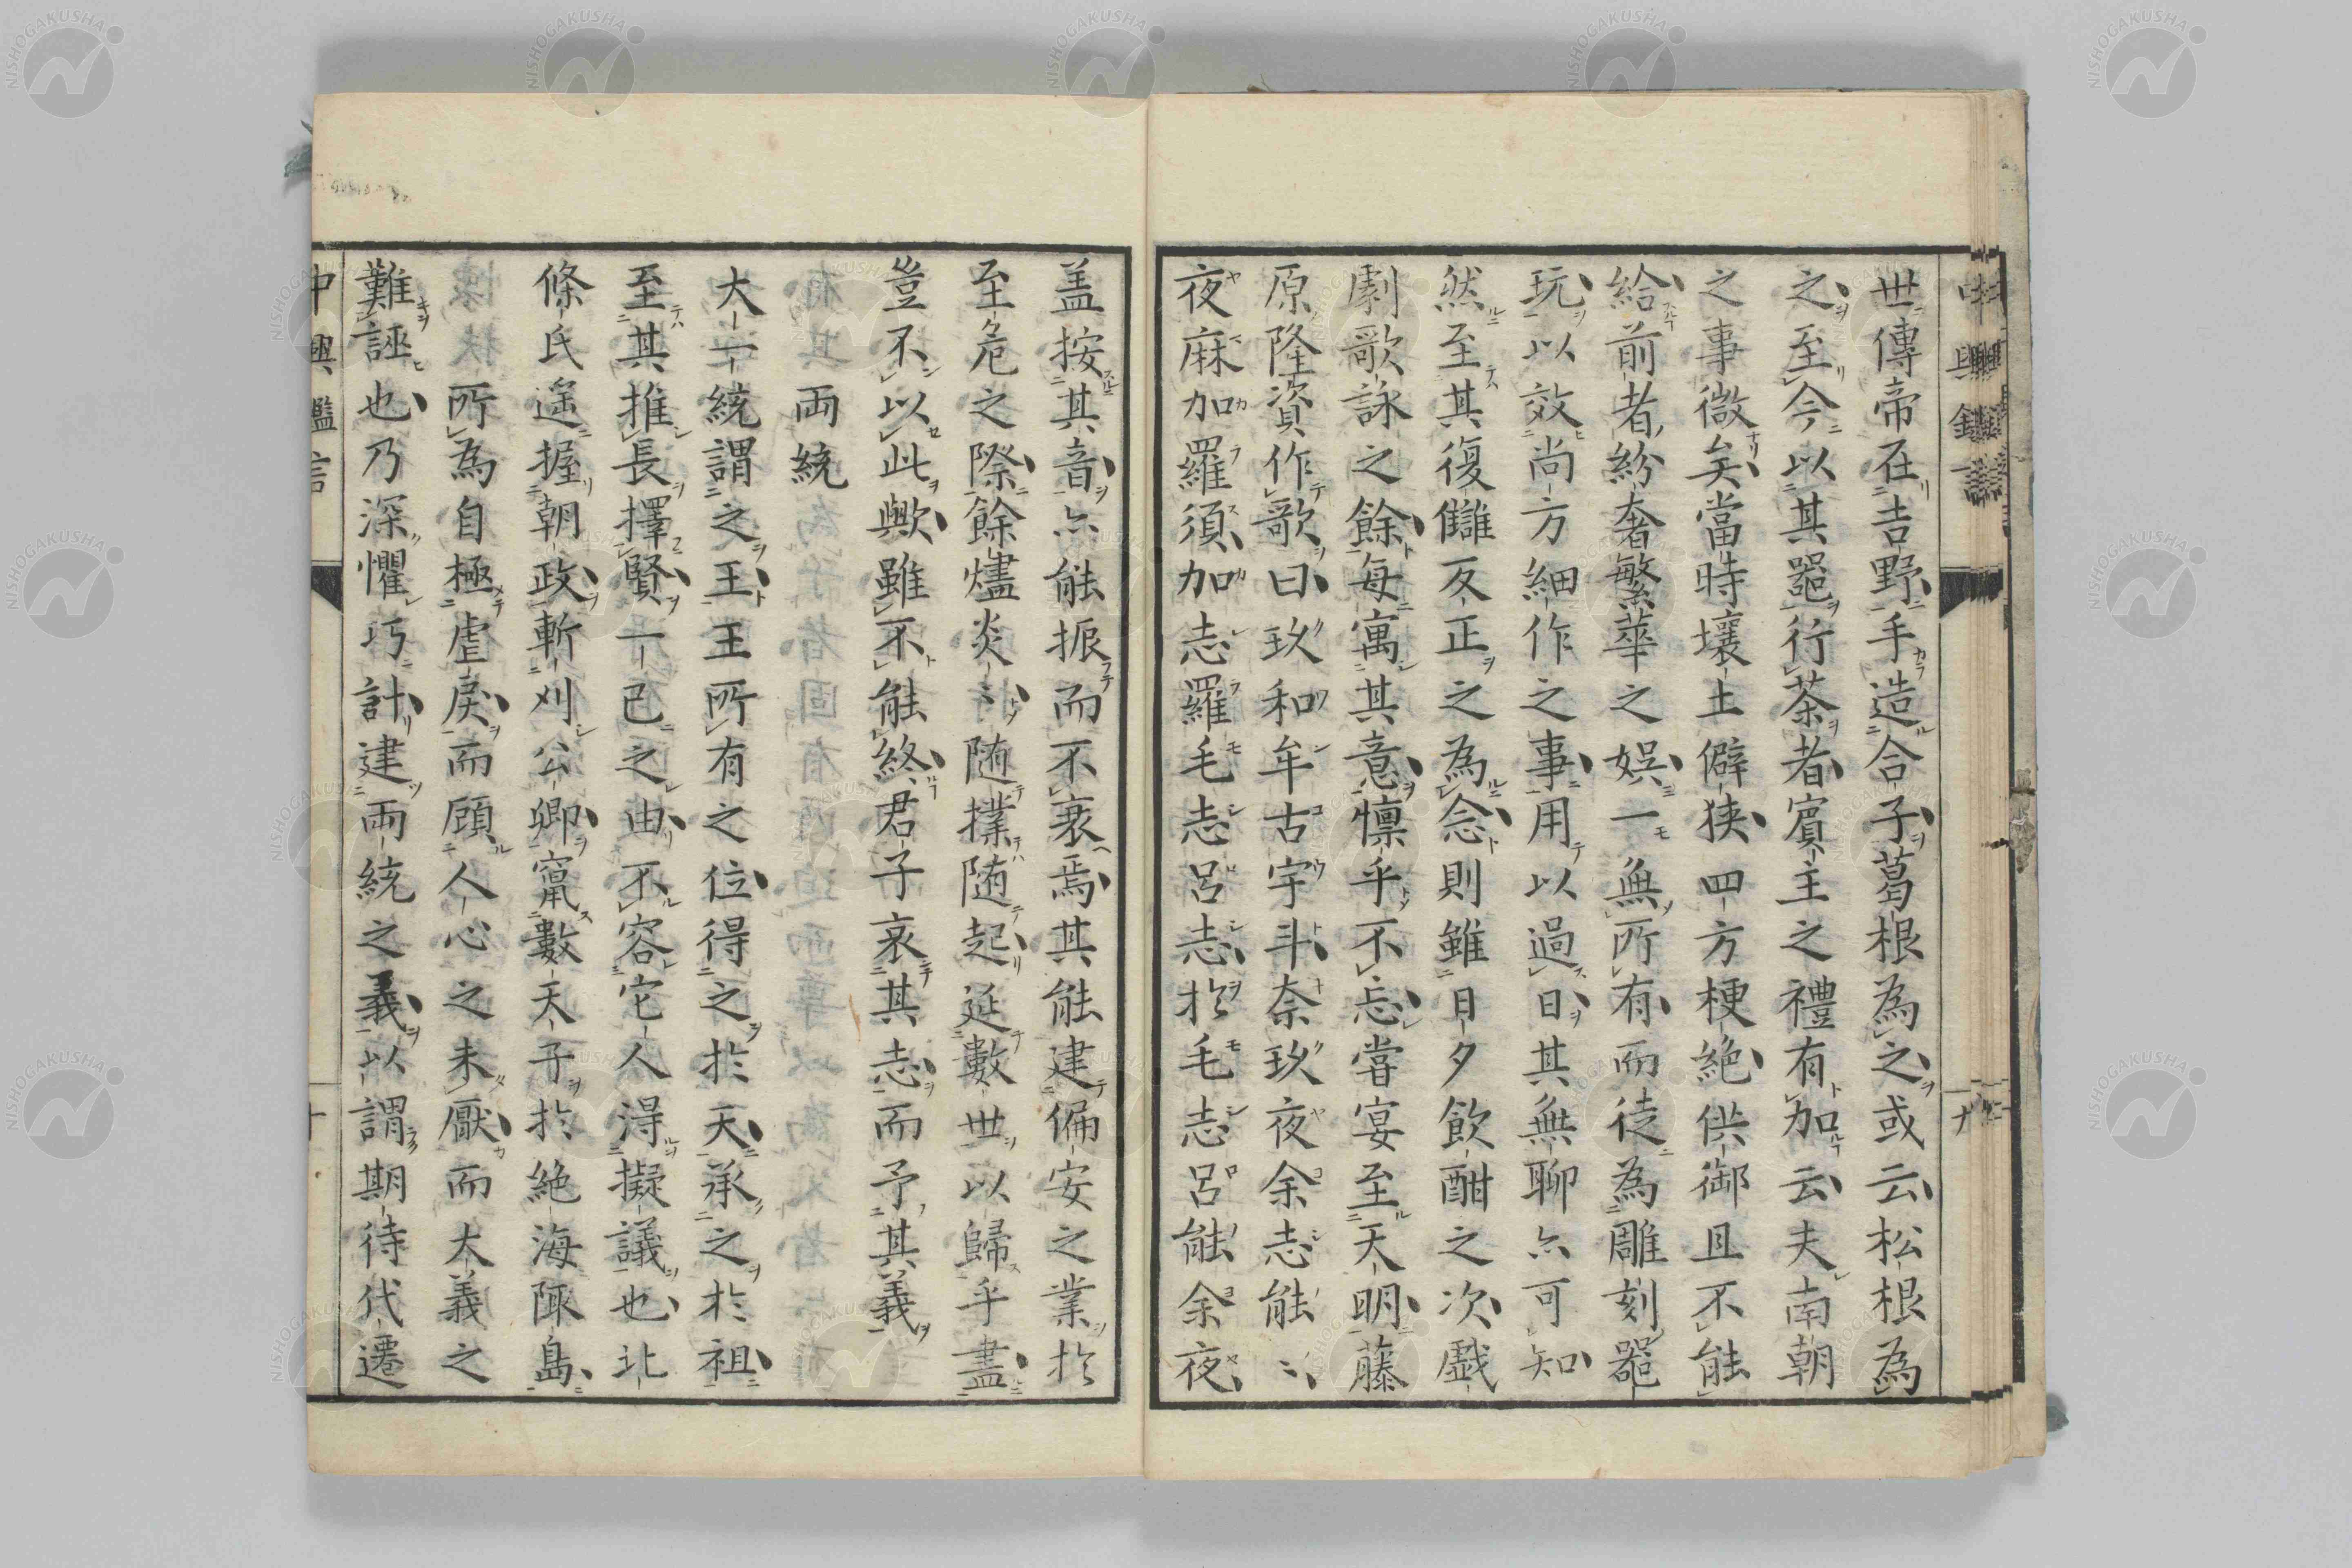 世傳帝在吉野手造合子葛根為之或云松根為
之至今以其噐行茶者賓主之禮有加云夫南朝
之事微矣當時壤土僻狭四方梗絶供御且不能
給前者紛奢繁華之娯一無所有而徒為雕刻噐
玩以效尚方細作之事用以過日其無聊亦可知
然至其復讎反正之為念則雖日夕飲酣之次戲
劇歌詠之餘每寓其意懍乎不忘嘗宴至天明藤
原隆資作歌曰玖和牟古宇斗奈玖夜余志能〻
夜麻加羅須加志羅毛志呂志於毛志呂能余夜
盖按其音亦能振而不衰焉其能建偏安之業於
至危之際餘燼炎〻随撲随起延數世以歸乎盡
豈不以此歟雖不能終君子哀其志而予其義
両統
大一統謂之王王所有之位得之於天承之於祖
至其推長擇賢一己之由不容它人得擬議也北
條氏遥握朝政斬刈公卿竄數天子於絶海陬島
所為自極虐戾而顧人心之未厭而大義之
難誣也乃深懼巧計建両統之義以謂期待代遷
中興鑑言
十